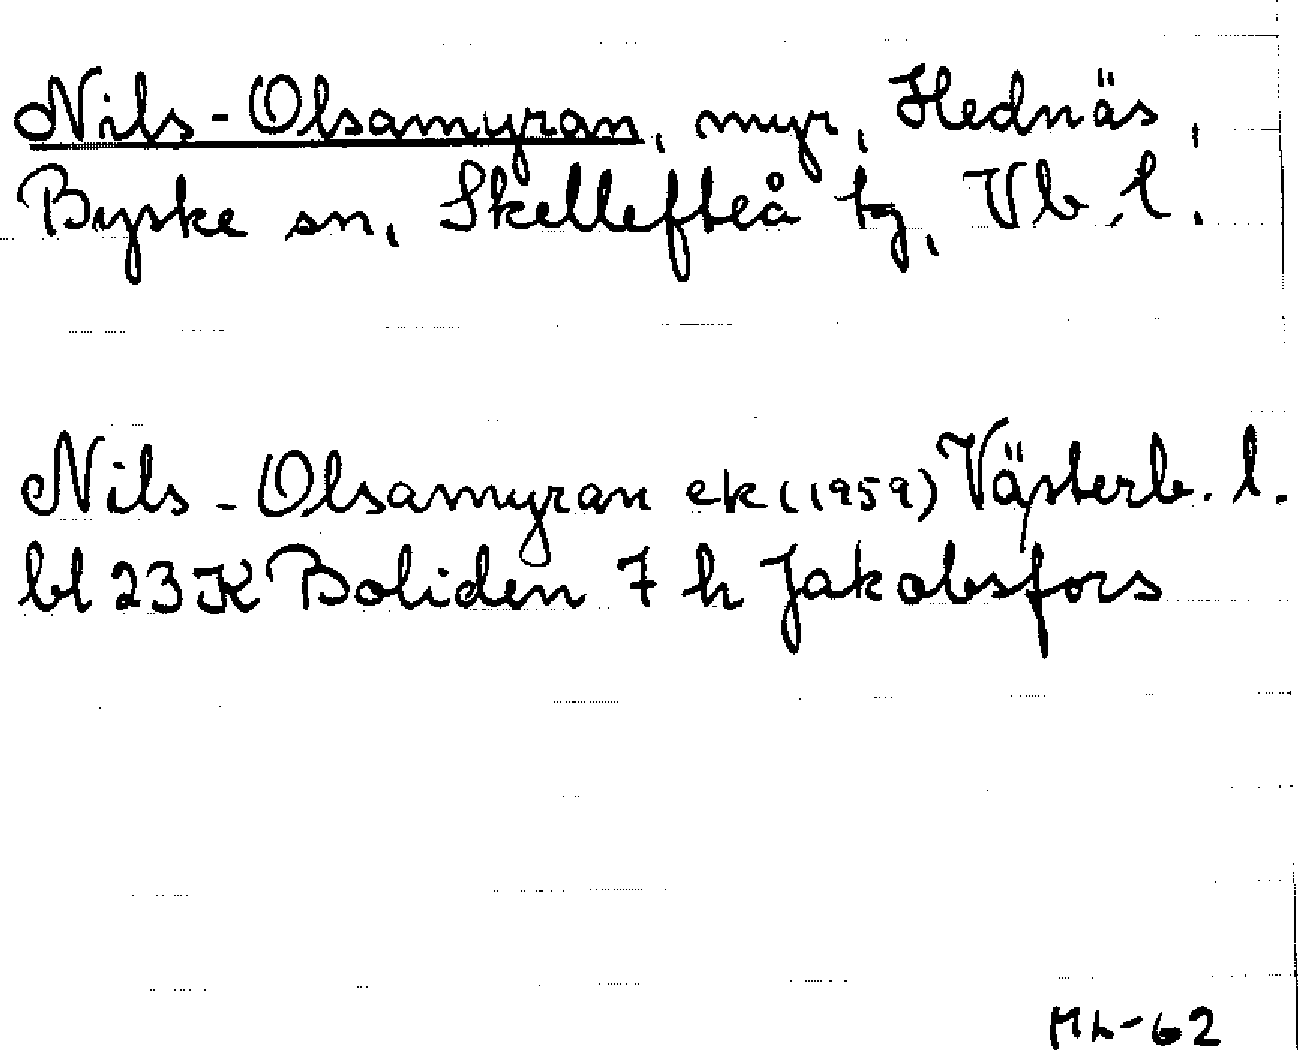 Nils-Olsamyran, myr, Hednäs,
Byske sn, Skellefteå tg, Vb. l.
Nils-Olsamyran ek (1959) Västerb. l.
bl 23K Boliden 7 h Jakobsfors
ML-62